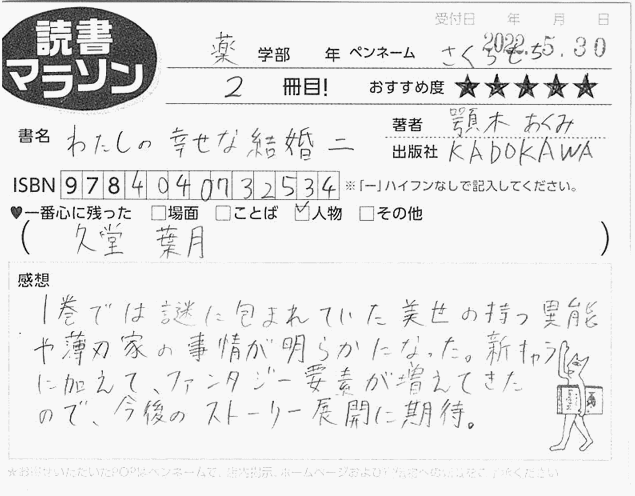 読書
マラソン
受付日 年 月 日
2022.5.30
薬 学部 年 ペンネーム さくらもち
2 冊目! おすすめ度 ★★★★★
書名 わたしの幸せな結婚 二
著者 顎木 あくみ
出版社 KADOKAWA
ISBN 9784040732534 ※「ー」ハイフンなしで記入してください。
♥一番心に残った □場面 □ことば ☑人物 □その他
( 久堂 葉月 )
感想
1巻では謎に包まれていた美世の持つ異能
や薄刃家の事情が明らかになった。新キャラ
に加えて、ファンタジー要素が増えてきた
ので、今後のストーリー展開に期待。